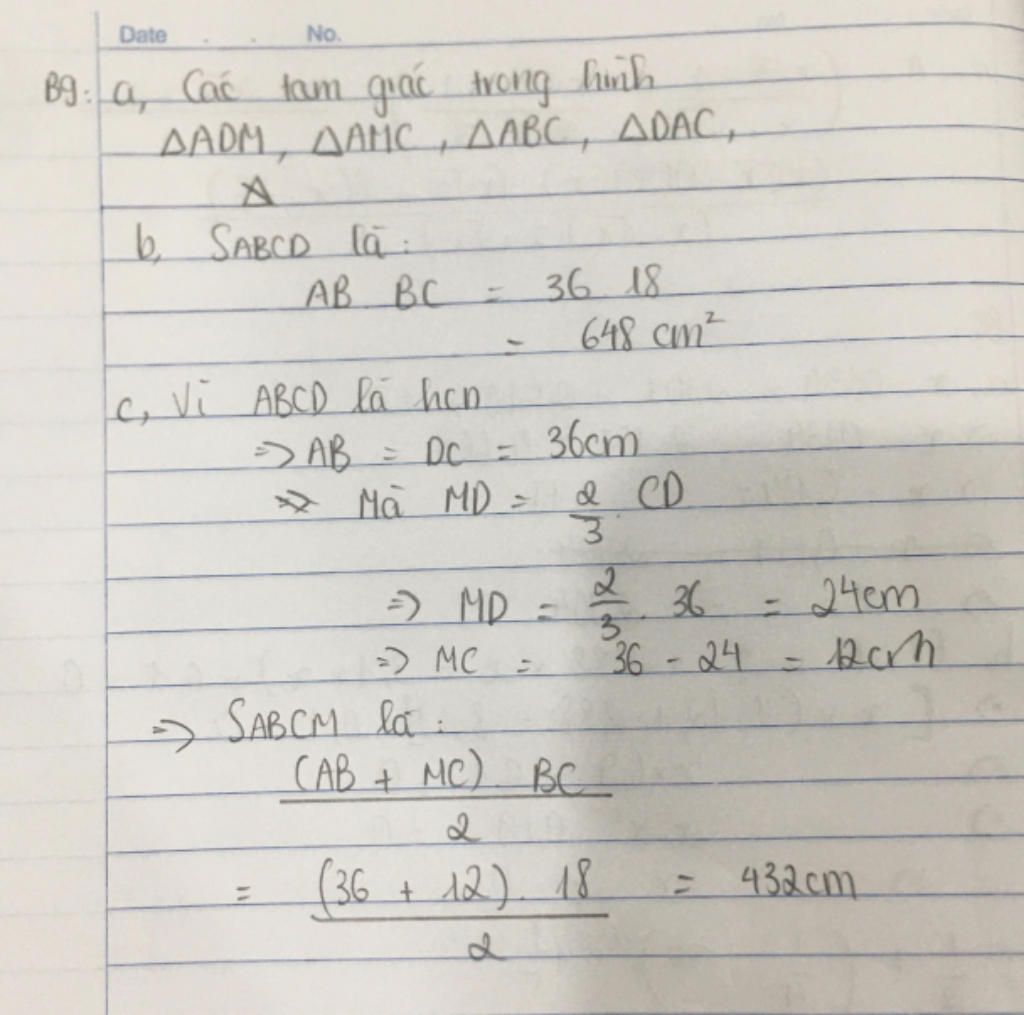 Date . . No.
B9: a, Các tam giác trong hình
ΔADM, ΔAMC, ΔABC, ΔDAC,
b, SABCD là:
AB BC = 36 18
= 648 cm²
c, Vì ABCD là hcn
=> AB = DC = 36cm
Mà MD = 2/3 . CD
=> MD = 2/3 . 36 = 24cm
=> MC = 36 - 24 = 12cm
=> SABCM là:
(AB + MC) . BC / 2
= (36 + 12) . 18 / 2 = 432cm